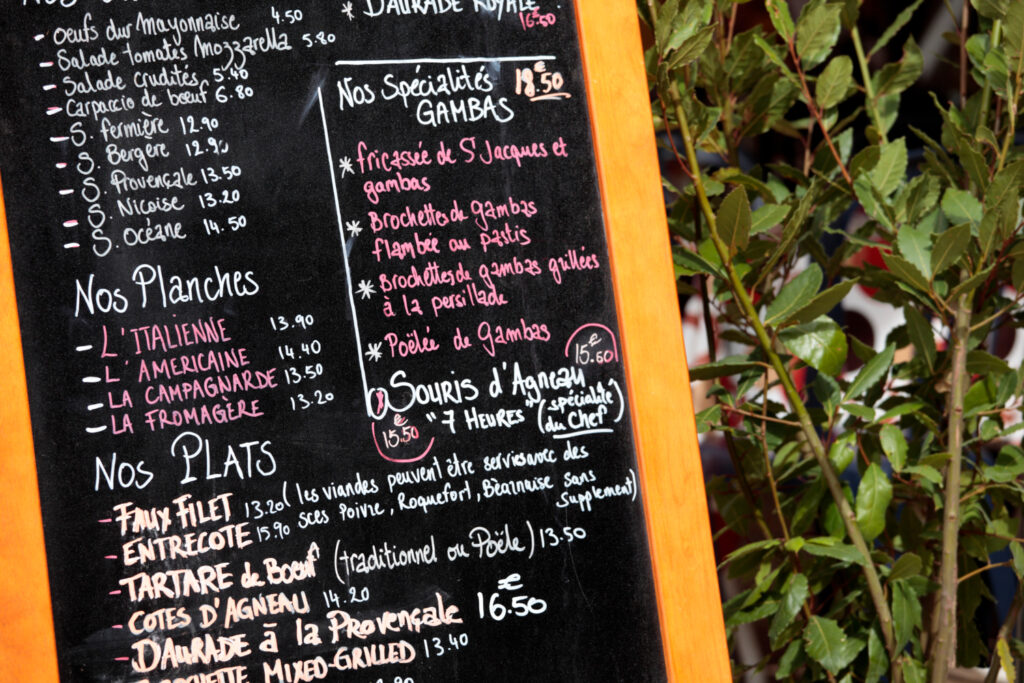 Oeufs dur Mayonnaise 4.50
Salade Tomates Mozzarella 5.80
Salade crudités 5.40
Carpaccio de boeuf 6.80
S. fermière 12.90
S. Bergère 12.90
S. Provençale 13.50
S. Nicoise 13.20
S. Océane 14.50
Nos Planches
L'ITALIENNE 13.90
L'AMERICAINE 14.40
LA CAMPAGNARDE 13.50
LA FROMAGÈRE 13.20
* DAURADE ROYALE 16.50
Nos Spécialités 18.50 €
GAMBAS
* fricassée de St Jacques et
gambas
* Brochettes de Gambas
flambée au pastis
* Brochettes de gambas grillées
à la persillade
* Poëlée de Gambas
15.60 €
Souris d'Agneau
"7 HEURES" (spécialité
du Chef)
15.50 €
NOS PLATS
- FAUX FILET 13.20 (les viandes peuvent être servies avec des
- ENTRECOTE 15.90 sces Poivre, Roquefort, Béarnaise sans
supplement)
- TARTARE de Boeuf (traditionnel ou Poële) 13.50
- COTES D'AGNEAU 14.20
- DAURADE à la Provençale 16.50 €
BROCHETTE MIXED-GRILLED 13.40